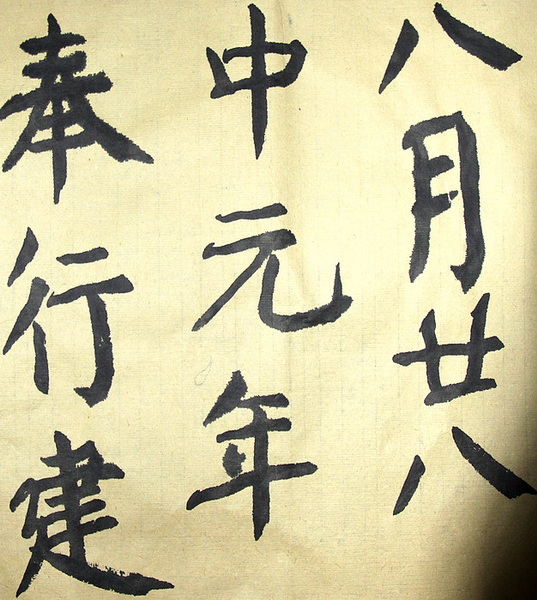 奉行建
中元年
八月廿八